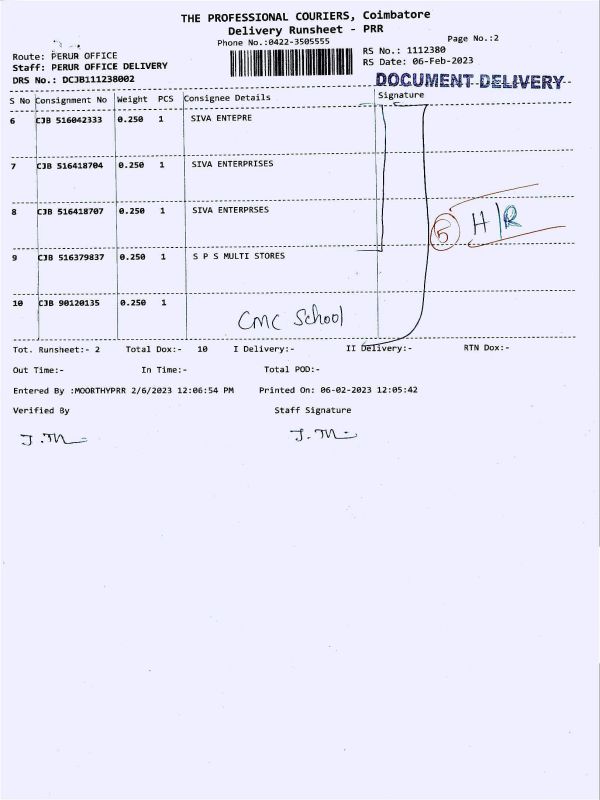 THE PROFESSIONAL COURIERS, Coimbatore
Delivery Runsheet - PRR
Phone No.:0422-3505555 Page No.:2
Route: PERUR OFFICE RS No.: 1112380
Staff: PERUR OFFICE DELIVERY RS Date: 06-Feb-2023
DRS No.: DCJB111238002 DOCUMENT DELIVERY
S No Consignment No Weight PCS Consignee Details Signature
6 CJB 516042333 0.250 1 SIVA ENTEPRE
7 CJB 516418704 0.250 1 SIVA ENTERPRISES
8 CJB 516418707 0.250 1 SIVA ENTERPRSES
5 H/R
9 CJB 516379837 0.250 1 S P S MULTI STORES
10 CJB 90120135 0.250 1
CMC School
Tot. Runsheet:- 2 Total Dox:- 10 I Delivery:- II Delivery:- RTN Dox:-
Out Time:- In Time:- Total POD:-
Entered By :MOORTHYPRR 2/6/2023 12:06:54 PM Printed On: 06-02-2023 12:05:42
Verified By Staff Signature